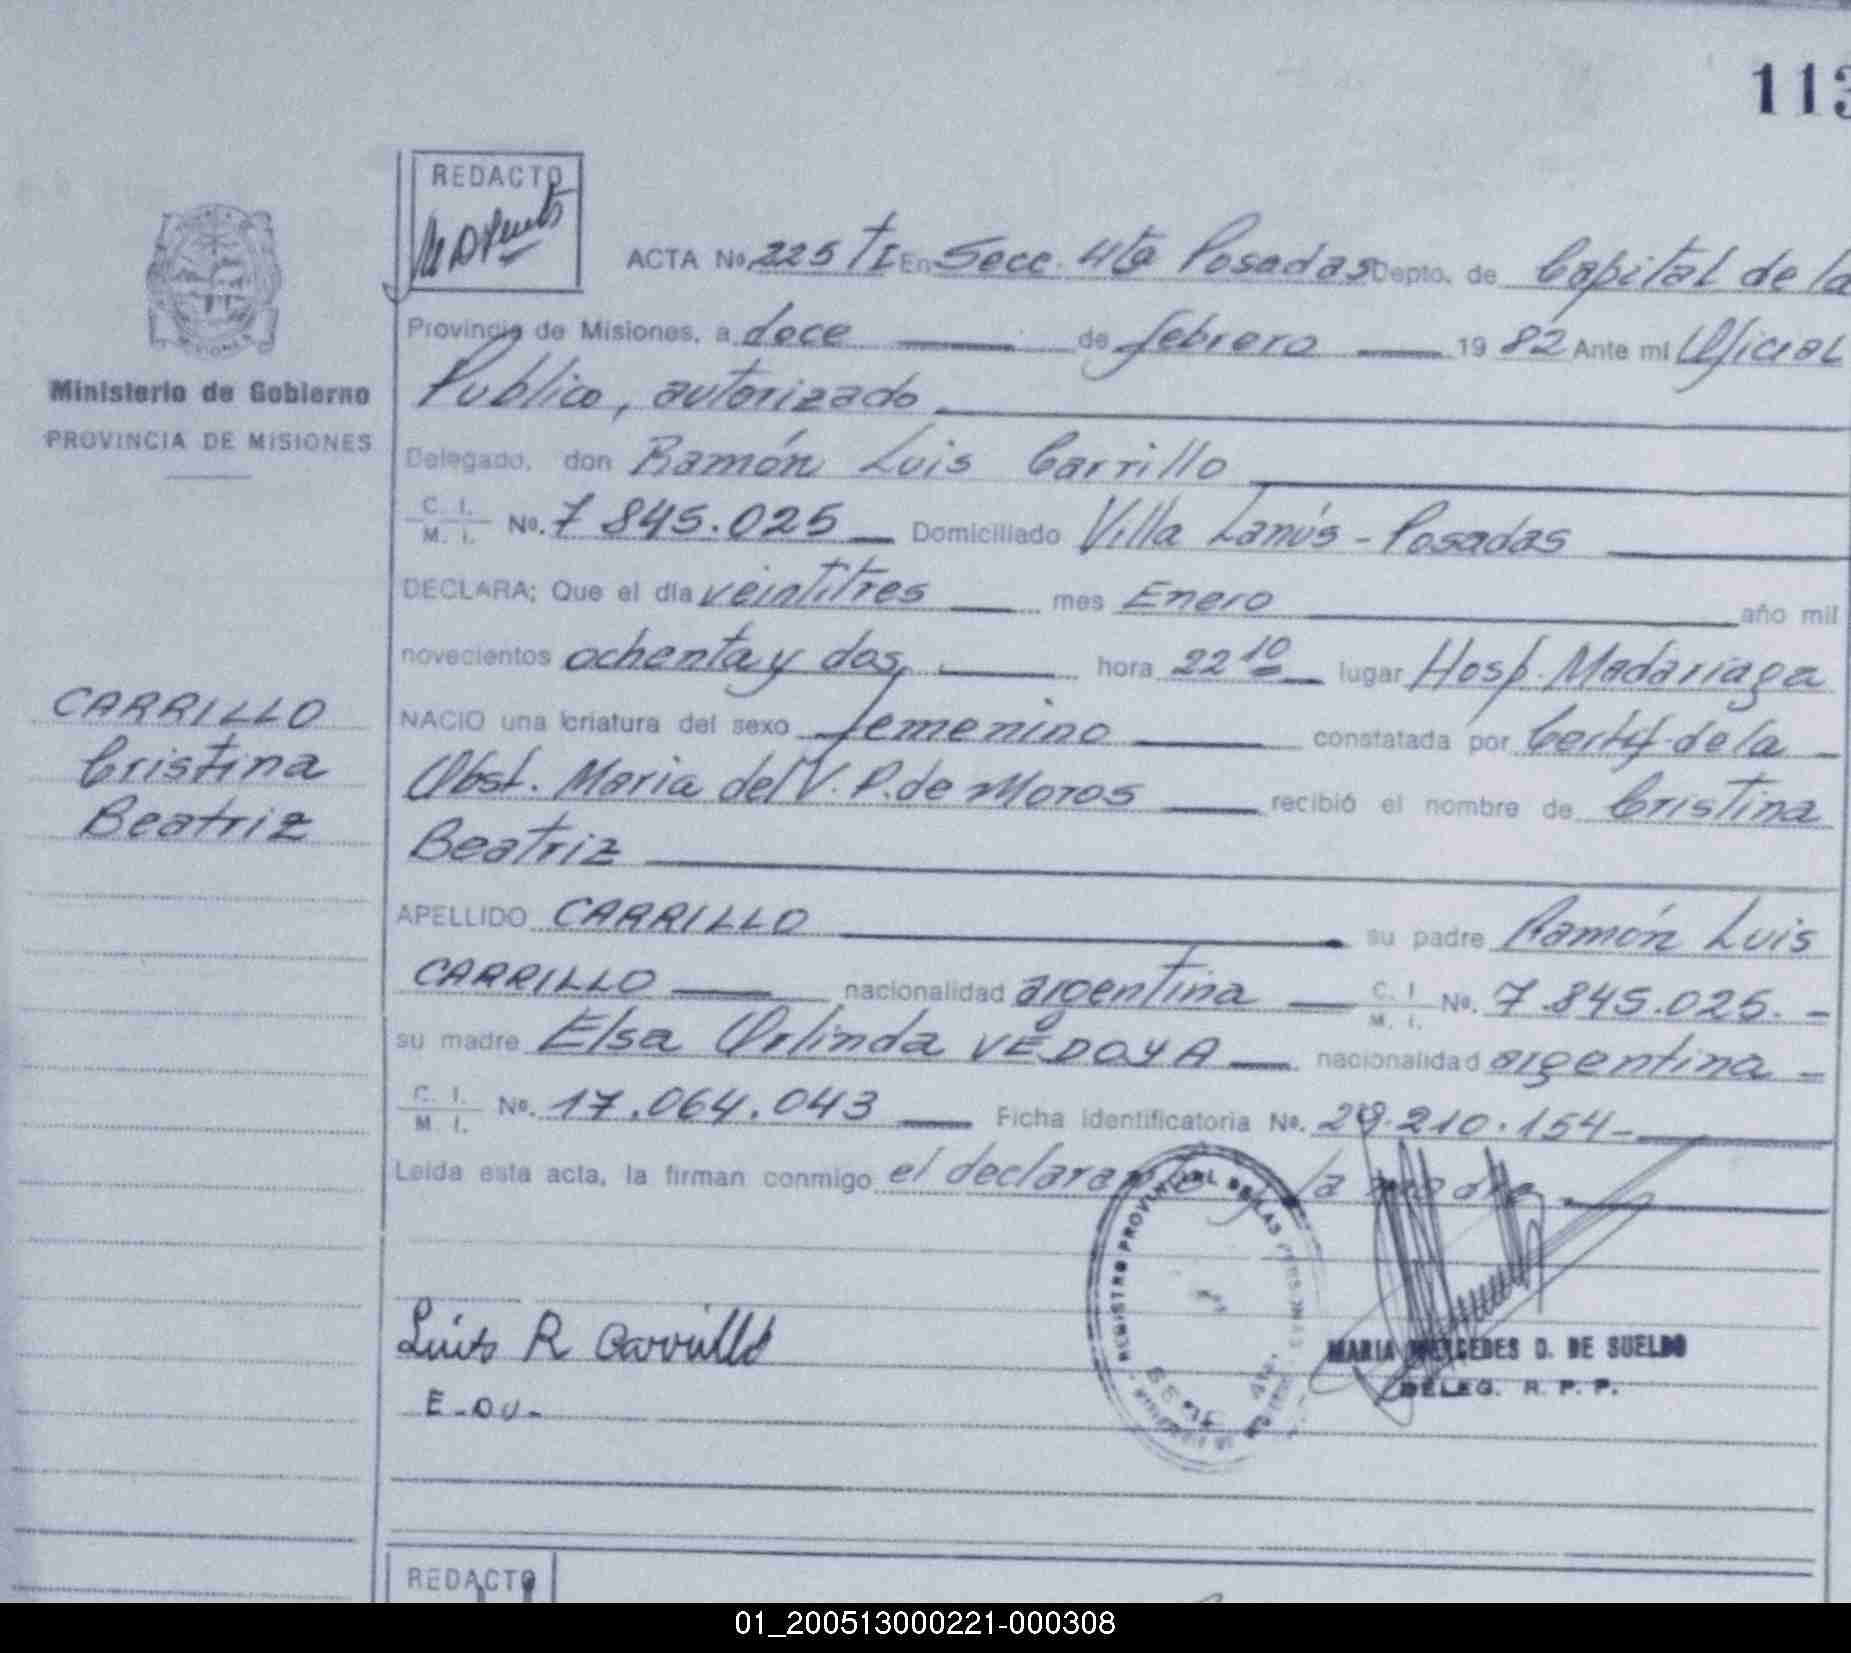 113
REDACTO
ACTA No 225 TI En Secc. 4ta Posadas Depto. de Capital de la
Provincia de Misiones, a doce de febrero 19 82 Ante mi Oficial
Publico, autorizado
Ministerio de Gobierno
PROVINCIA DE MISIONES
Delegado, don Ramón Luis Carrillo
C. I.
M. I. No. 7 845.025 Domiciliado Villa Lanús - Posadas
DECLARA; Que el día veintitres mes Enero año mil
novecientos ochenta y dos, hora 22 10 lugar Hosp. Madariaga
CARRILLO
Cristina
Beatriz
NACIO una criatura del sexo femenino constatada por Certif. de la
Obst. Maria del V. P. de Moros recibió el nombre de Cristina
Beatriz
APELLIDO CARRILLO su padre Ramón Luis
CARRILLO nacionalidad argentina C. I. M. I. No. 7.845.025.-
su madre Elsa Orlinda VEDOYA nacionalidad argentina -
C. I.
M. I. No. 17.064.043 Ficha identificatoria No. 29.210.154-
Leida esta acta, la firman conmigo el declarante la madre.
REGISTRO PROVINCIAL DE LAS PERSONAS
Luis R Carrillo
MARIA MERCEDES D. DE SUELDO
DELEG. R. P. P.
E-OV-
REDACTO
01_200513000221-000308